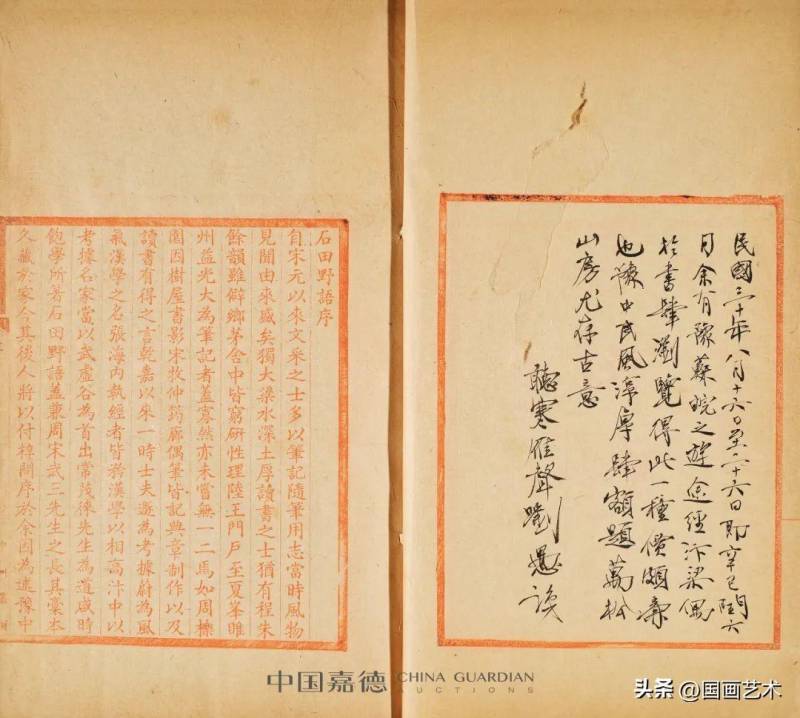 民國三十年八月十六日至二十六日即辛巳閏六
月余有豫蘇皖之遊途經汴梁偶
於書肆瀏覽得此一種價頗廉
也豫中民風淳厚肆額題萬松
山房尤存古意
聽寒雁聲劉
石田野語序
自宋元以來文采之士多以筆記隨筆用志當時風物
見聞由來盛矣獨大梁水深土厚讀書之士猶有程朱
餘韻雖僻鄉茅舍中皆窮研性理陸王門戶至夏峯睢
州益光大為筆記者蓋寡然亦未嘗無一二焉如周櫟
園因樹屋書影宋牧仲筠廊偶筆皆記典章制作以及
讀書有得之言乾嘉以來一時士夫遞為考據蔚為風
氣漢學之名張海內執經者皆務漢學以相高汴中以
考據名家當以武虛谷為首出常茂徠先生為道咸時
飽學所著石田野語蓋兼周宋武三先生之長其稾本
久藏於家今其後人將以付梓問序於余因為述豫中
中国嘉德 CHINA GUARDIAN
AUCTIONS
头条 @国画艺术